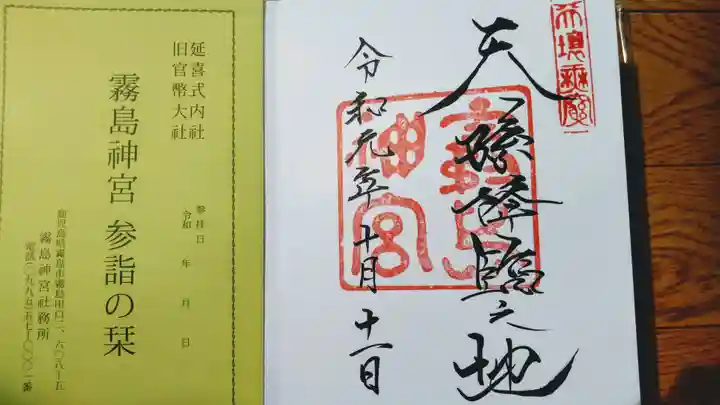 延喜式内社
旧官幣大社
霧島神宮 参詣の栞
参拝日
令和 年 月 日
鹿児島県霧島市霧島田口二、六〇八ー五
霧島神宮社務所
電話(〇九九五)五七ー〇〇〇一番
天孫降臨之地
霧島
神宮
令和元年十月十一日